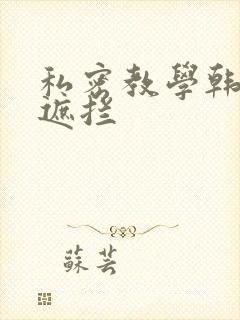 私密教學韩
遮挡
蘇芸